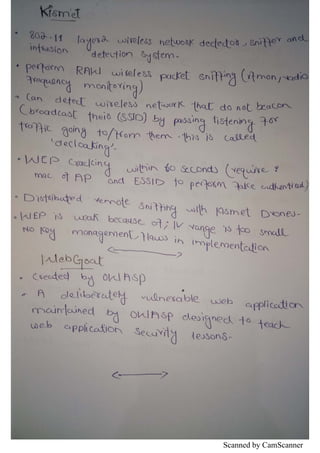 Kismet
• 802.11 layer2 wireless network dectector, sniffer and
intrusion detection system.
• perform RAW wireless packet sniffing (rfmon, radio
frequency monitoring)
• can detect wireless network that do not beacon
(broadcast their (SSID) by passing listening for
traffic going to/from them. this is called
'decloaking'.
• WEP cracking within 60 seconds (require
mac of AP and ESSID to perform fake authentica)
• Distributed remote sniffing with kismet Drones.
• WEP is weak because of; IV range is too small
NO key management, flaws in implementation
WebGoat
• Created by OWASP
• A deliberately vulnerable web application
maintained by OWASP designed to teach
web application security lessons.
Scanned by CamScanner